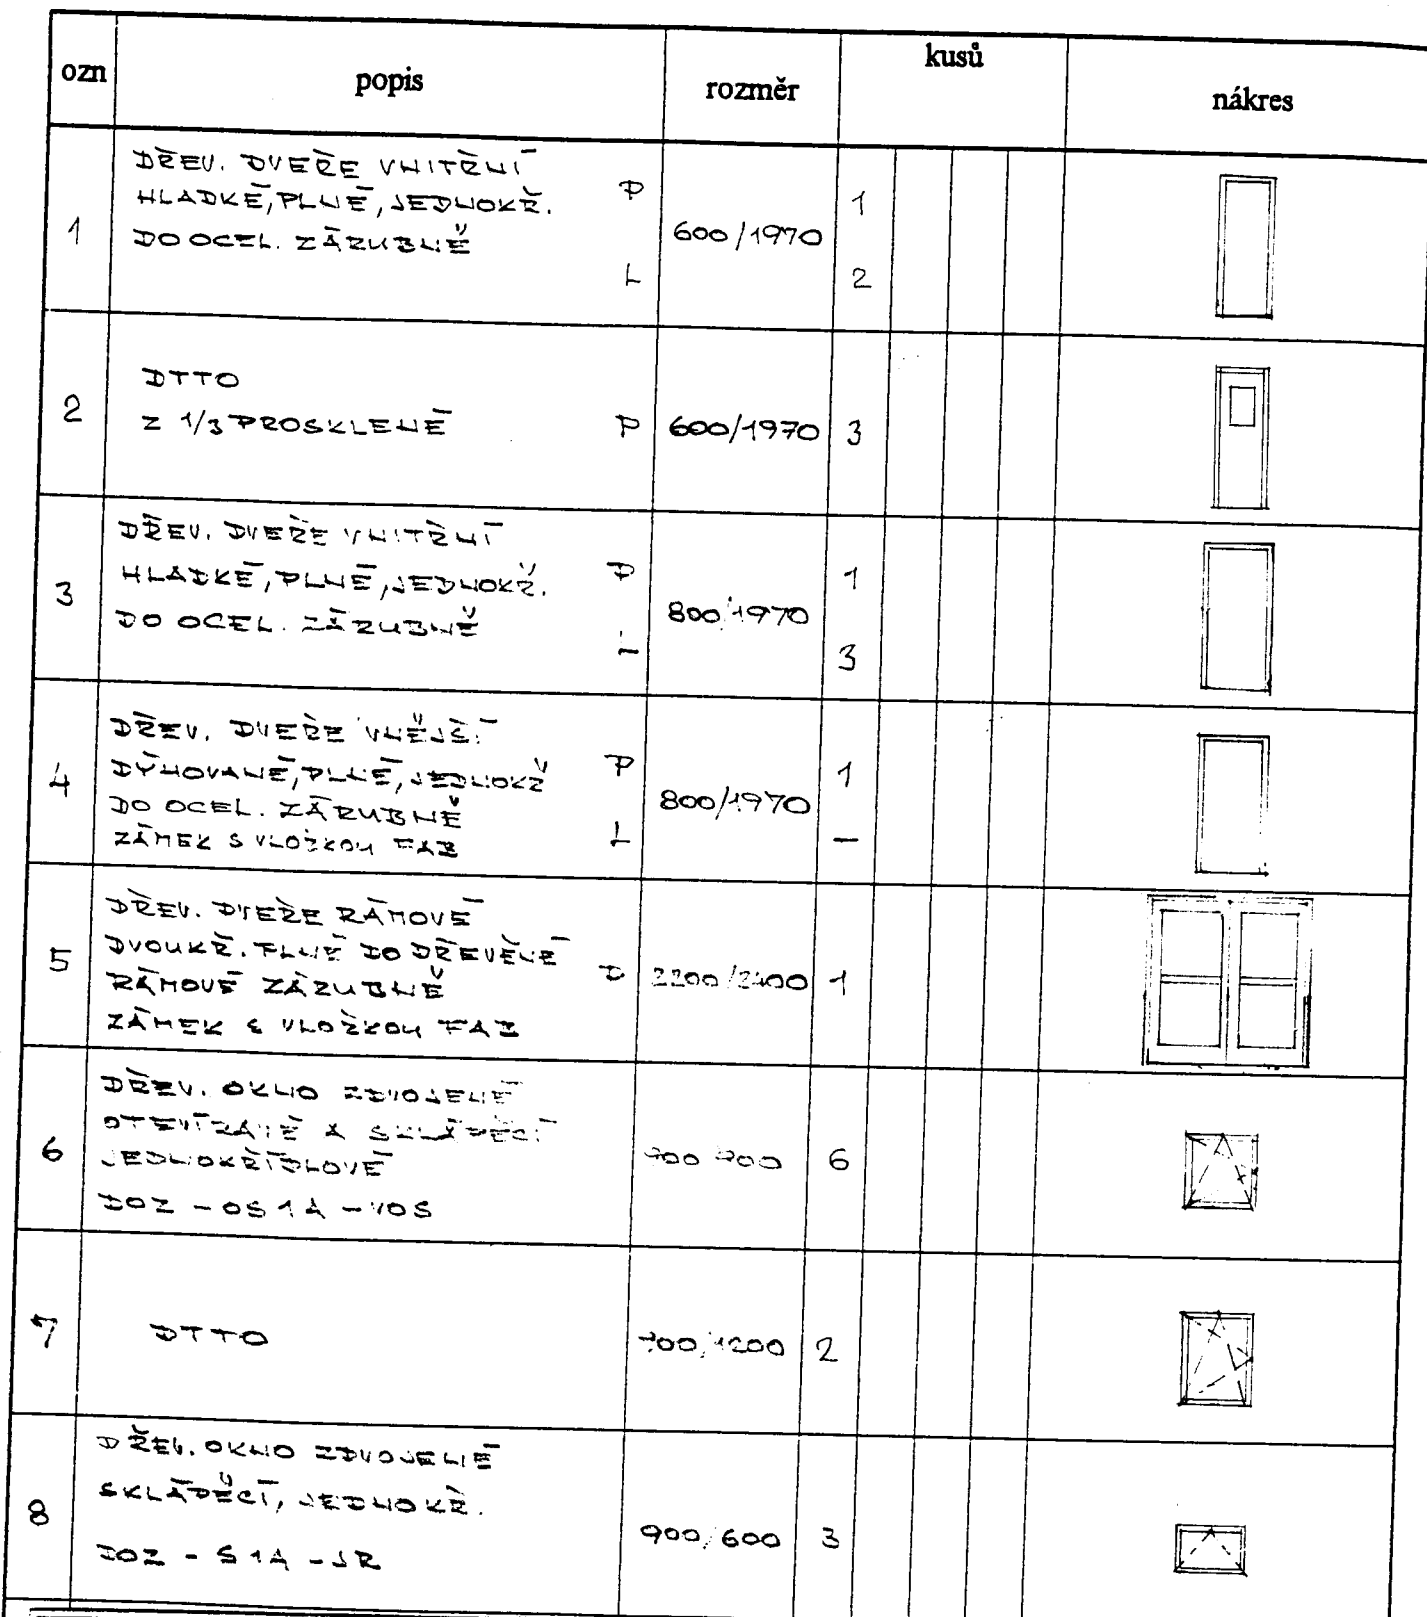 ozn popis rozměr kusů nákres
1 DŘEV. DVEŘE VNITŘNÍ
HLADKÉ, PLNÉ, JEDNOKŘ. P 1
DO OCEL. ZÁRUBNĚ 600/1970
L 2
2 DTTO
Z 1/3 PROSKLENÉ P 600/1970 3
3 DŘEV. DVEŘE VNITŘNÍ
HLADKÉ, PLNÉ, JEDNOKŘ. P 1
DO OCEL. ZÁRUBNĚ 800/1970
L 3
4 DŘEV. DVEŘE VNĚJŠÍ
DÝHOVANÉ, PLNÉ, JEDNOKŘ P 1
DO OCEL. ZÁRUBNĚ 800/1970
ZÁMEK S VLOŽKOU FAB L –
5 DŘEV. DVEŘE RÁMOVÉ
DVOUKŘ. PLNÉ DO DŘEVĚNÉ
RÁMOVÉ ZÁRUBNĚ P 2200/2400 1
ZÁMEK S VLOŽKOU FAB
6 DŘEV. OKNO ZDVOJENÉ
OTEVÍRAVÉ A SKLÁPĚCÍ
JEDNOKŘÍDLOVÉ 6
DOZ - OS1A - VOS
7 DTTO 2
8 DŘEV. OKNO ZDVOJENÉ
SKLÁPĚCÍ, JEDNOKŘ.
900/600 3
DOZ - S1A - JR